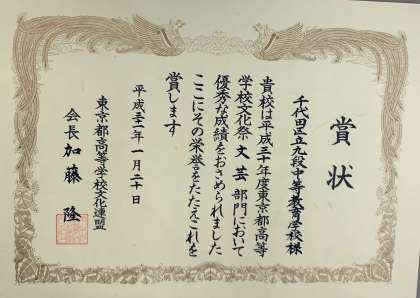 賞状
千代田区立九段中等教育学校様
貴校は平成三十年度東京都高等
学校文化祭文芸部門において
優秀な成績をおさめられました
ここにその栄誉をたたえこれを
賞します
平成三十一年一月二十日
東京都高等学校文化連盟
会長加藤隆